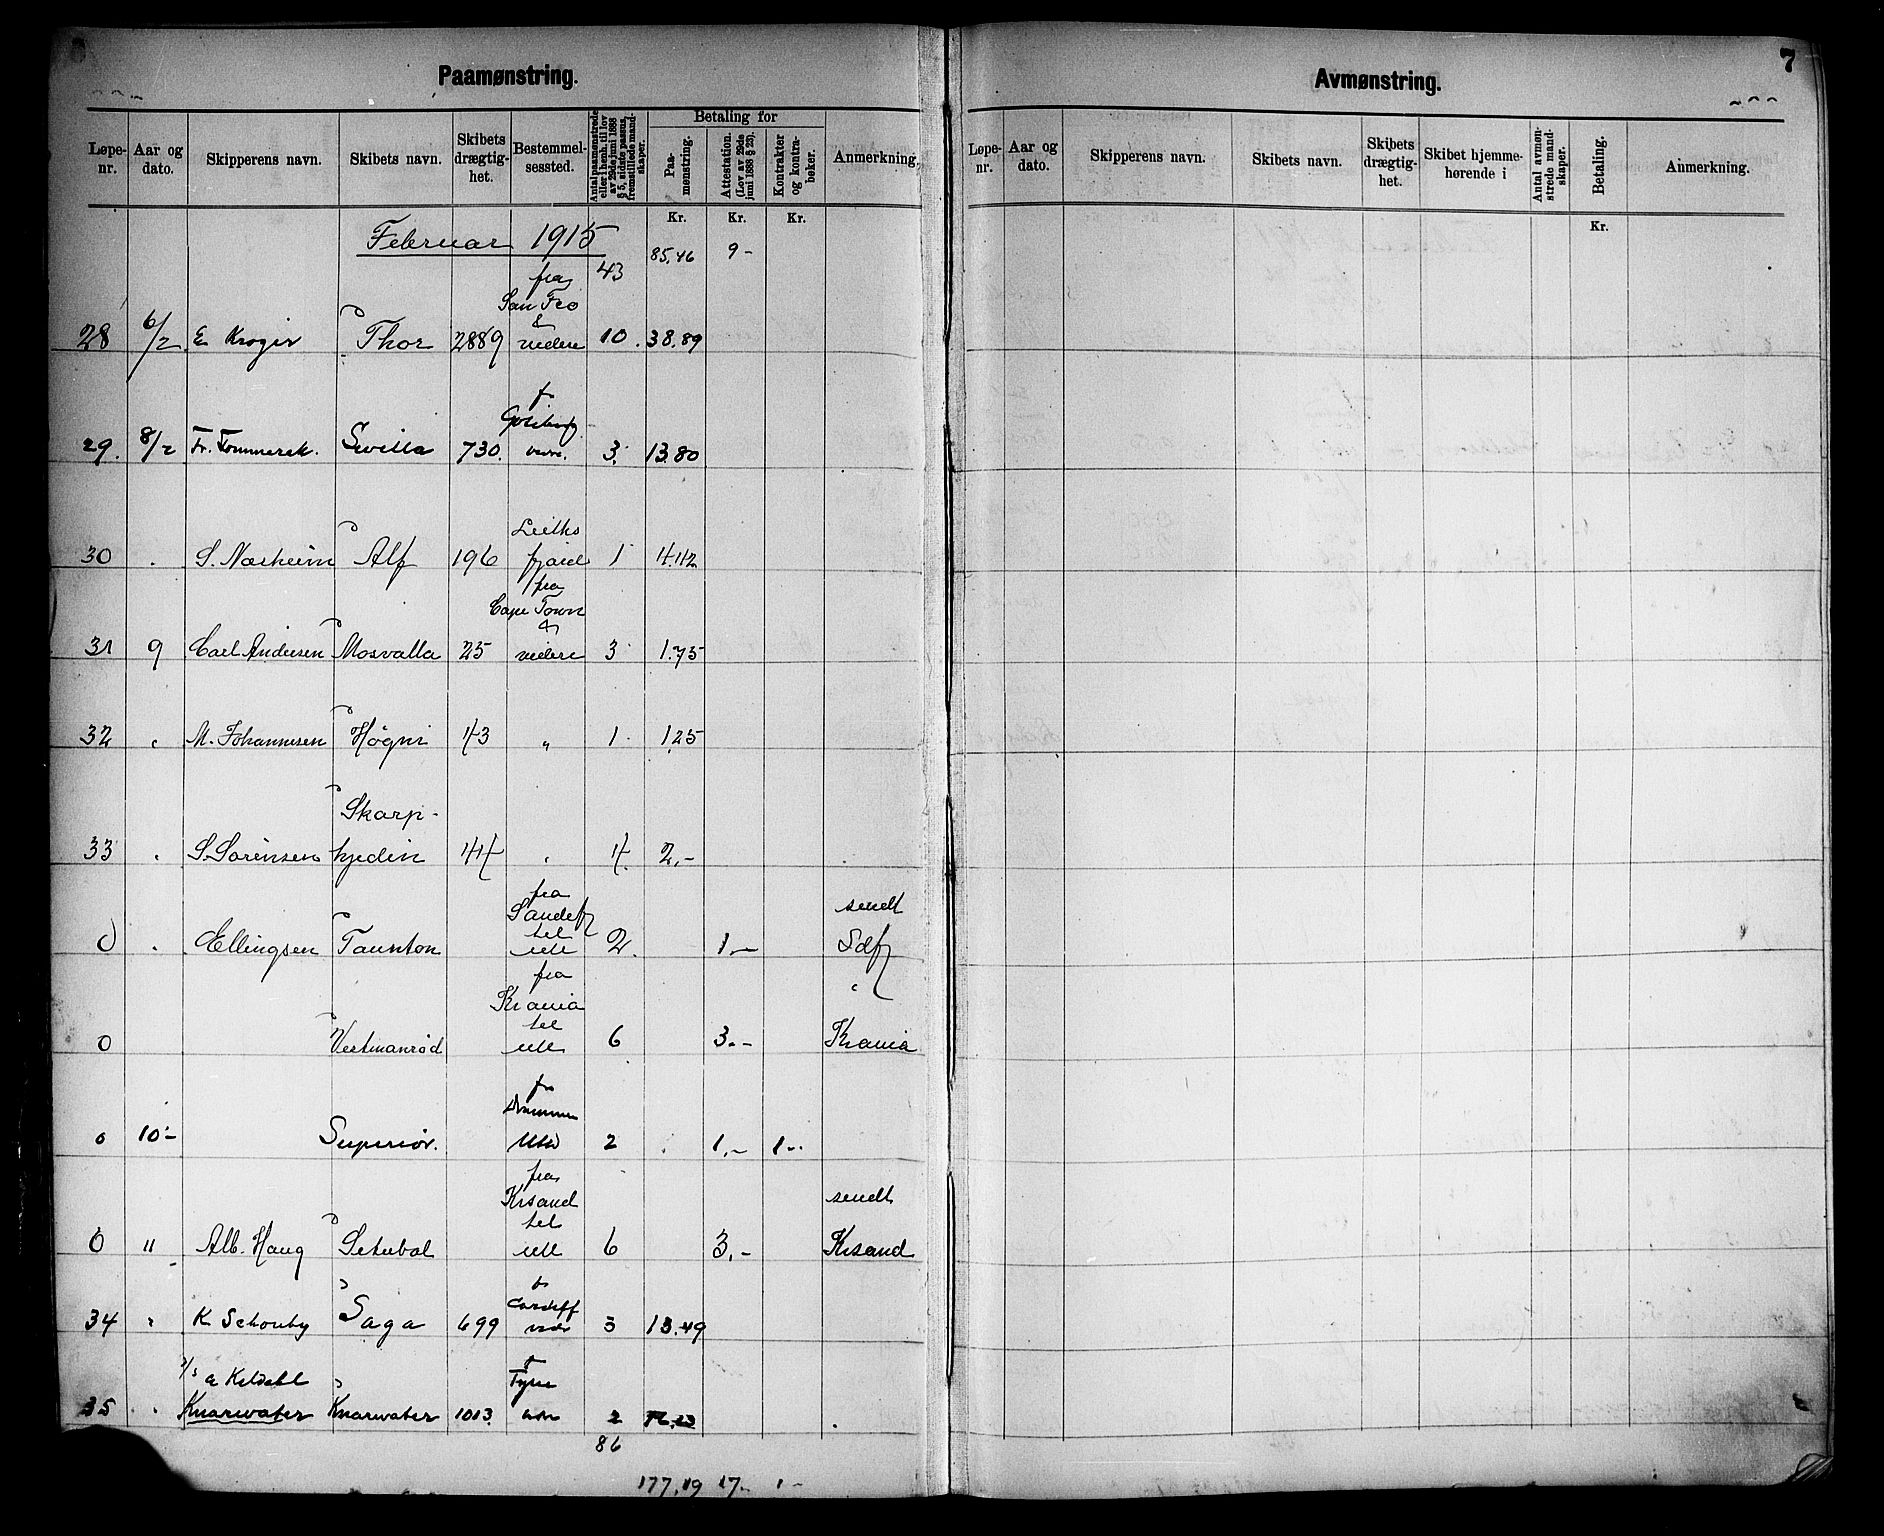 7
Paamønstring.
Løpe-nr. Aar og dato. Skipperens navn. Skibets navn. Skibets drægtighet. Bestemmelsessted. Antal paamønstrede eller i henh. til lov av 29de juni 1888 § 5, sidste passus, fremstillede mandskaper. Betaling for Paamønstring. Attestation. (Lov av 29de juni 1888 § 23). Kontrakter og kontrabøker. Anmerkning.
Kr. Kr. Kr.
Februar 1915 43 85,46 9-
fra
San Fco
&
28 6/2 E Kroger Thor 2889 videre 10. 38.89
f
29. 8/2 Fr. Tommerek. Sevilla 730. 3. 13.80
Leiths
30 . S. Næsheim Alf 196 fjord 1 4.42
fra
Cape Town
&
31 9 Carl Andersen Mosvalla 25 videre 3 1.75
32 " M. Johannesen Høgni 43 " 1 1,25
Skarp-
33 " S. Sørensen hjedin 44 " 4. 2,-
fra
Sandefj sendt
til
0 " Ellingsen Taunton utl 2. 1,- Sdfj
fra
Krania "
til
0 Vestmanrød utl 6 3.- Krania
fra
Drammen
0 10- Superiør. Utl 2 1,- 1-
fra
Krsand sendt
til
0 " Alb. Haug Setubal utl 6 3,- Krsand
Cardiff
34 " K Schouby Saga 699 3 13.49
Tyne
35 " Knarwater Knarwater 1013. 2
86
177,19 17- 1-
Avmønstring.
Løpe-nr. Aar og dato. Skipperens navn. Skibets navn. Skibets drægtighet. Skibet hjemmehørende i Antal avmønstrede mandskaper. Betaling. Anmerkning.
Kr.